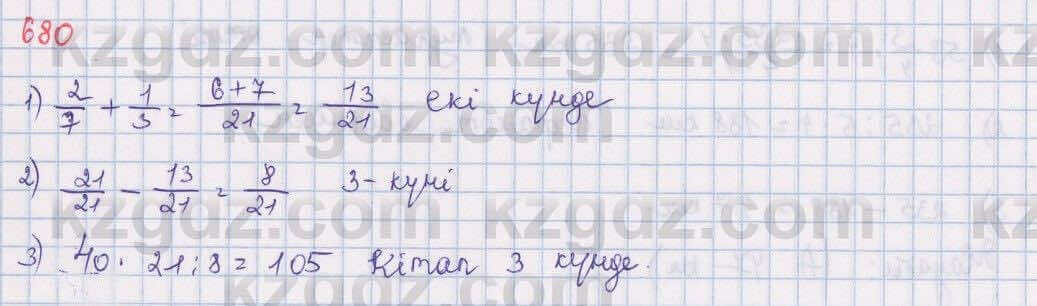 680
kzgdz.com kzgdz.com kz
1) 2/7 + 1/3 = 6+7/21 = 13/21 екі күнде
2) 21/21 - 13/21 = 8/21 3-күні
kzgdz.com kzgdz.com kz
3) 40 · 21 : 8 = 105 Кітап 3 күнде.
kzgdz.com